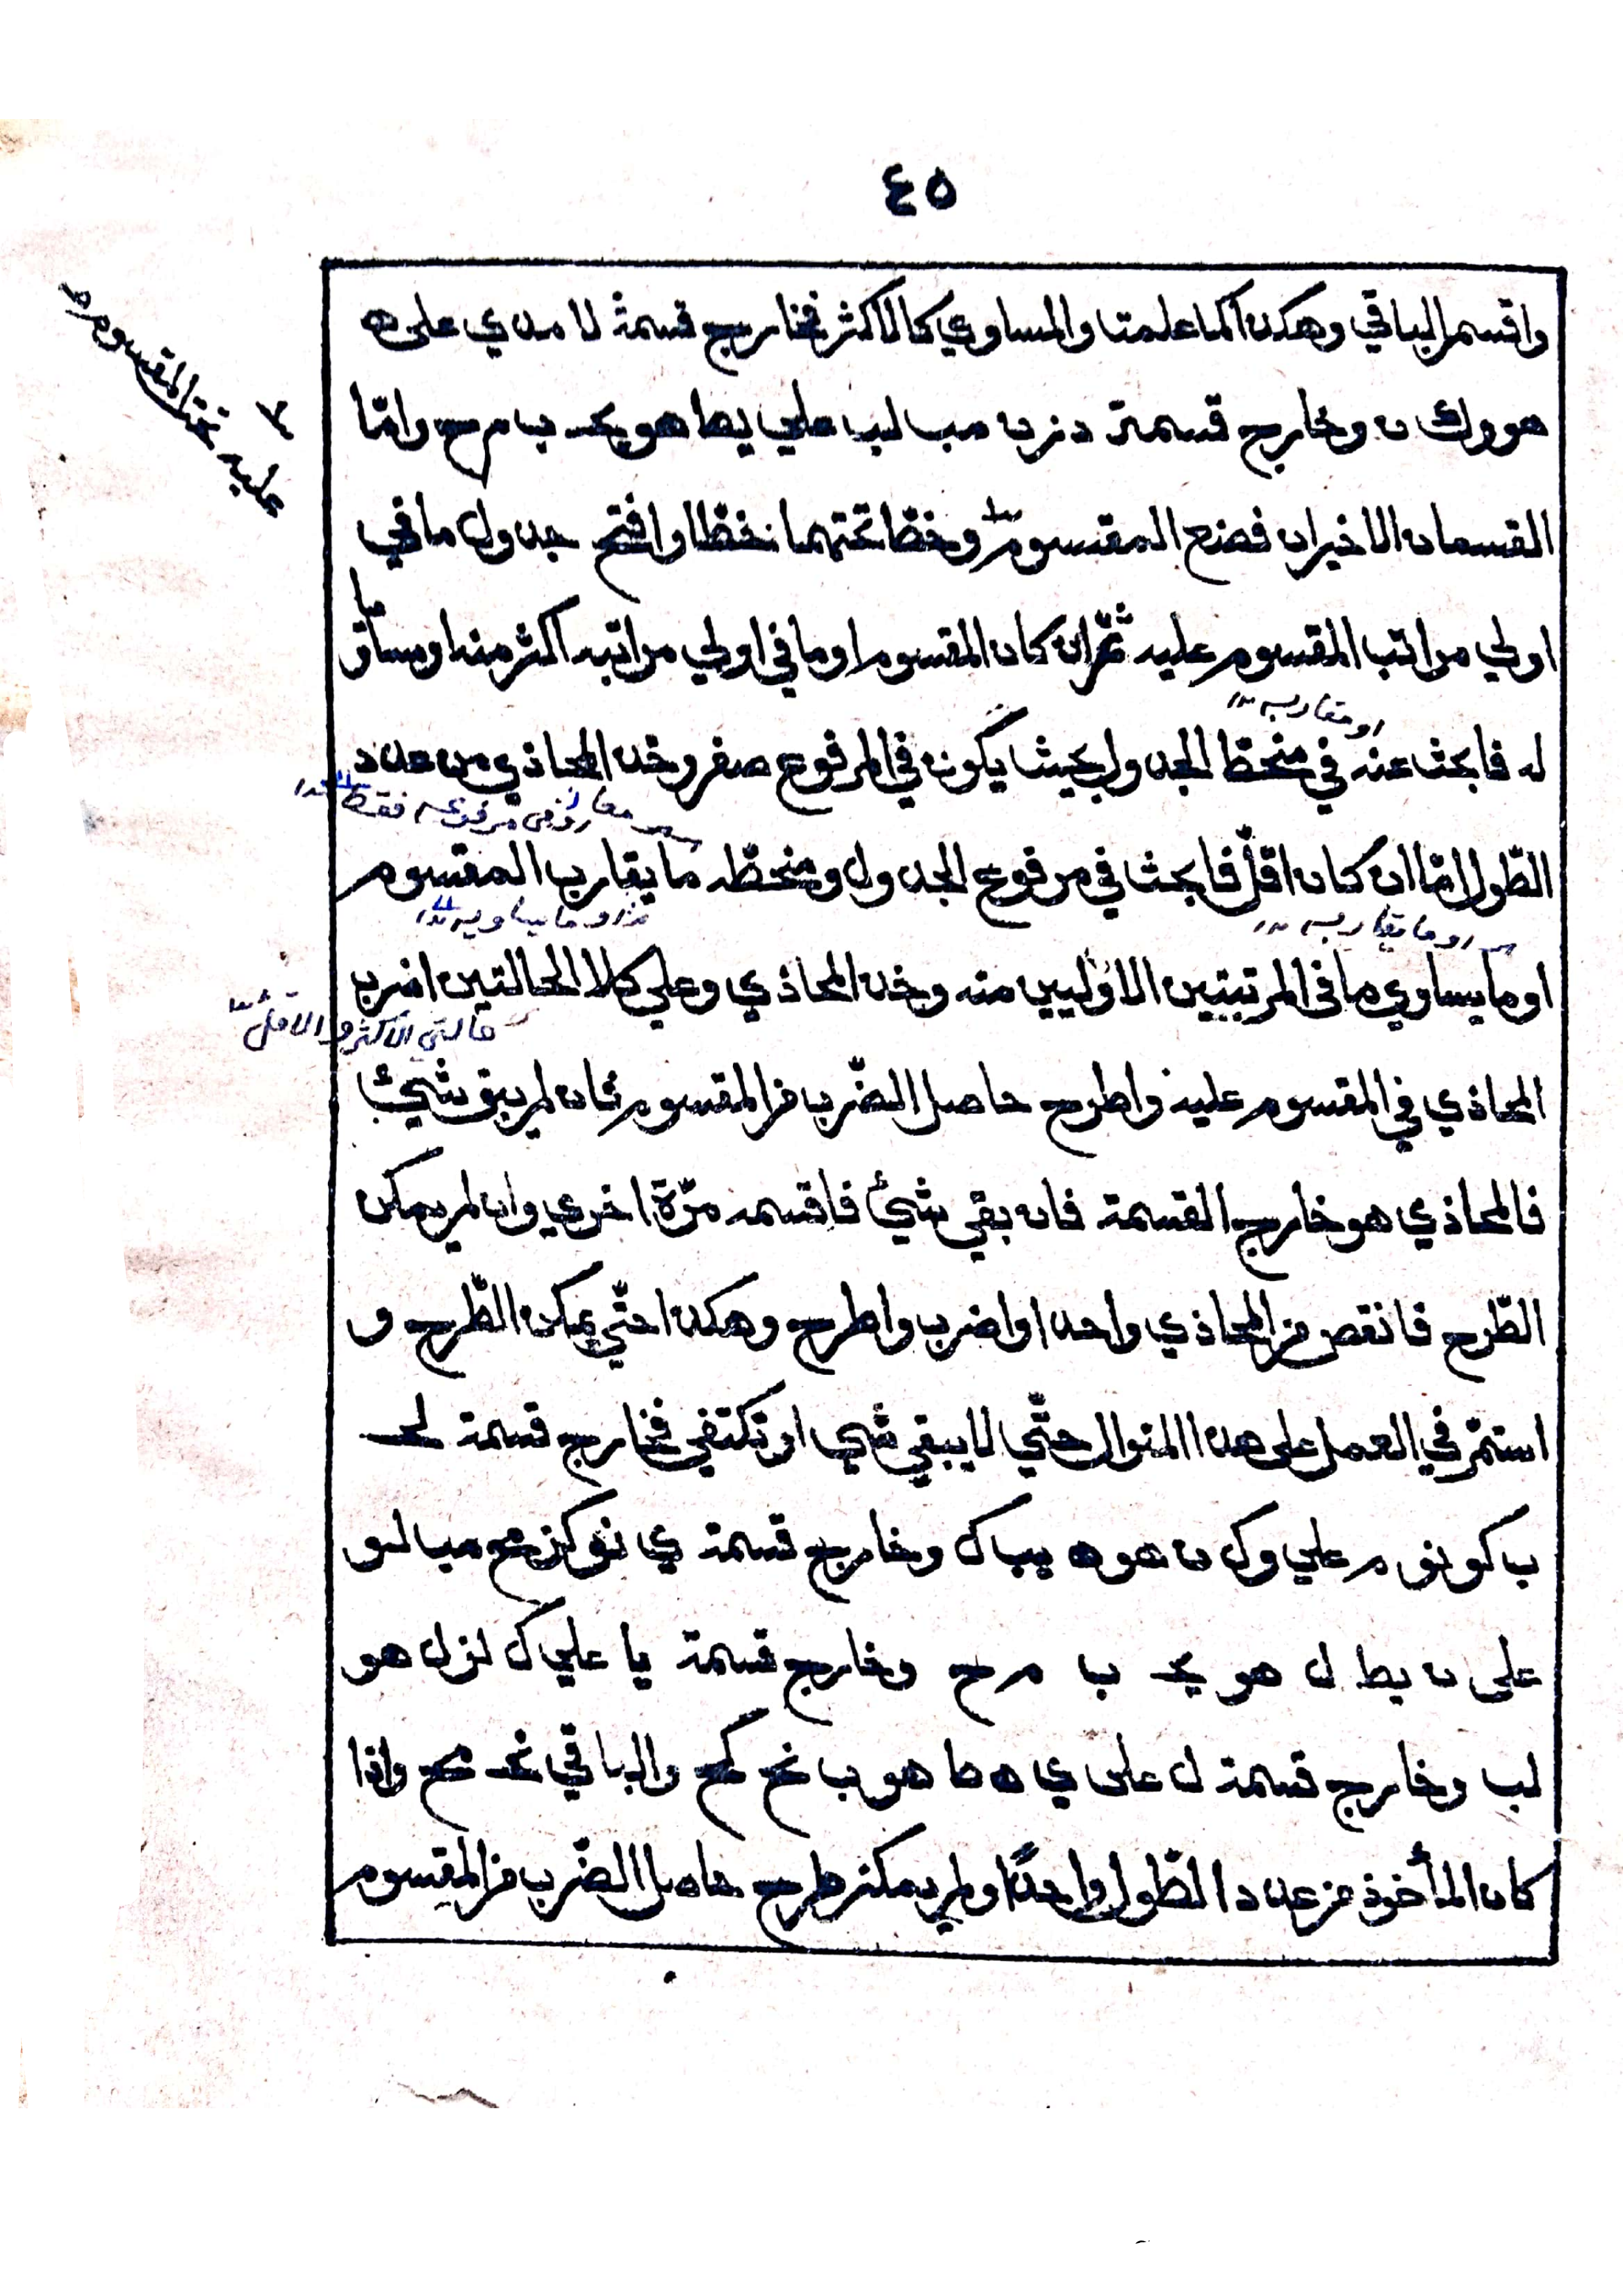 ٤٥
واقسم الباقي وهكذا كما علمت والمساوي كالاكثر فخارج قسمة لا مه ي على ه
هو وك ن وخارج قسمة د نر ن مب لب علي يط هو يحـ ب مح وامّا
القسمان الاخيران فضع المقسوم وخطّا تحتهما خطّا وافتح جدول ما في
اولي مراتب المقسوم عليه ثمّ ان كان المقسوم او ما في اولي مراتبه اكثر منه او مساويا
او مقاربـه
له فابحث عنه في منحطّ الجدول بحيث يكون في المرفوع صفر وخذ المحاذي من عدد
الطّول امّا ان كان اقلّ فابحث في مرفوع الجدول ومنحطّه ما يقارب المقسوم
او ما يقاربـه
او ما يساويه
او ما يساوي ما في المرتبتين الاوليين منه وخذ المحاذي وعلي كلا الحالتين اضرب
حالتي الاكثر والاقل
المحاذي في المقسوم عليه واطرح حاصل الضّرب من المقسوم فان لم يبق شيئ
فالمحاذي هو خارج القسمة فان بقي شيئ فاقسمه مرّة اخري وان لم يمكن
الطّرح فانقص من المحاذي واحدا واضرب واطرح وهكذا حتّي يمكن الطّرح و
استمرّ في العمل على هذا المنوال حتّي لا يبقي شيي او تكتفي فخارج قسمة لحـ
ب كو نو م علي و ك ن هو ه يب ك وخارج قسمة ي نو كز مح مب لو
على ن يط ل هو يحـ ب مح وخارج قسمة يا علي ك لز ل هو
لب وخارج قسمة ل على ي ه ط هو ب نح كح والباقي نحـ مح واذا
كان المأخوذ من عدد الطّول واحدًا ولم يمكن طرح حاصل الضّرب من المقسوم
عليه تحت المقسوم